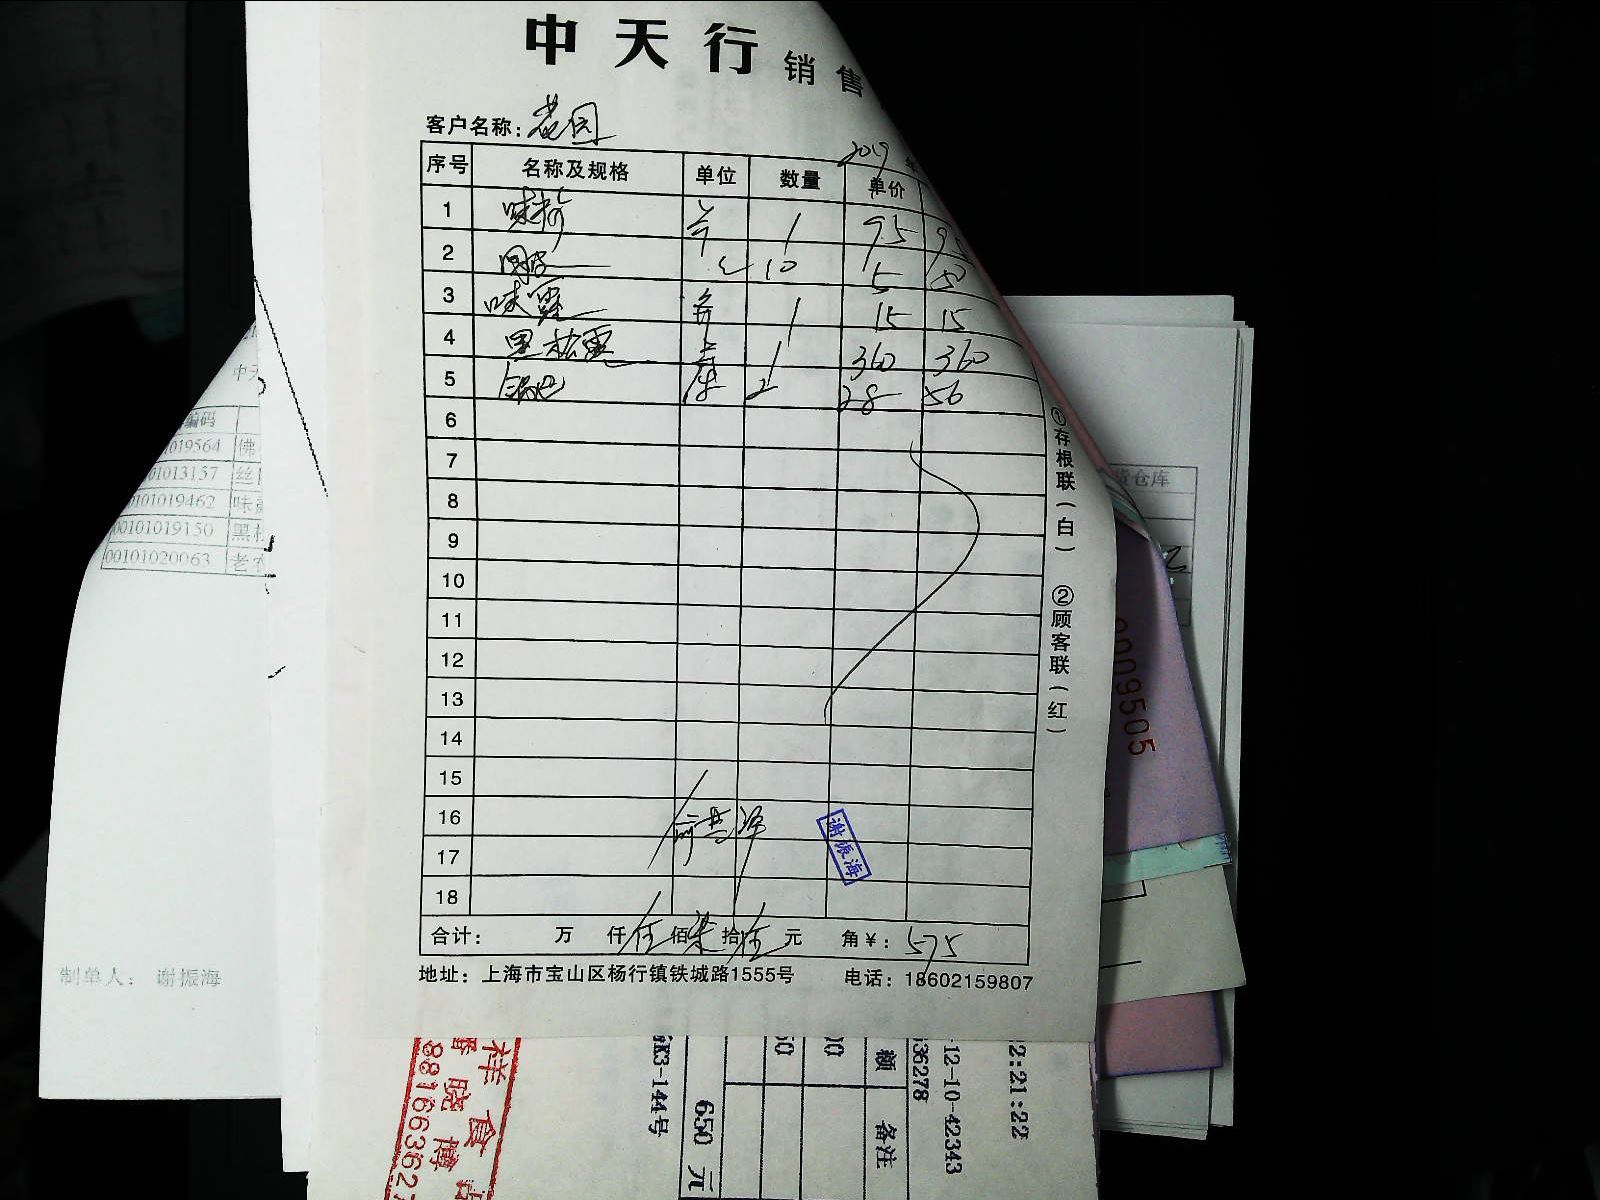 中天行 销售
客户名称: 花园
2019 年
序号 名称及规格 单位 数量 单价
1 1 95 95
2 10 5 50
3 味露 瓶 1 15 15
4 黑松露 1 360 360
5 锅巴 2 28 56
6
7
8
9
10
11
12
13
14
15
16
17
18
谢振海
合计: 万 仟 伍 佰 柒 拾 伍 元 角 ¥: 575
地址: 上海市宝山区杨行镇铁城路1555号 电话: 18602159807
①存根联(白) ②顾客联(红)
编码
019564 佛
01013157 丝
0101019462 味
00101019150 黑
00101020063 老
制单人: 谢振海
货仓库
0009505
K3-144号
650 元
额 备注
36278
-12-10-42343
2:21:22
祥 食
晓 博
881663627